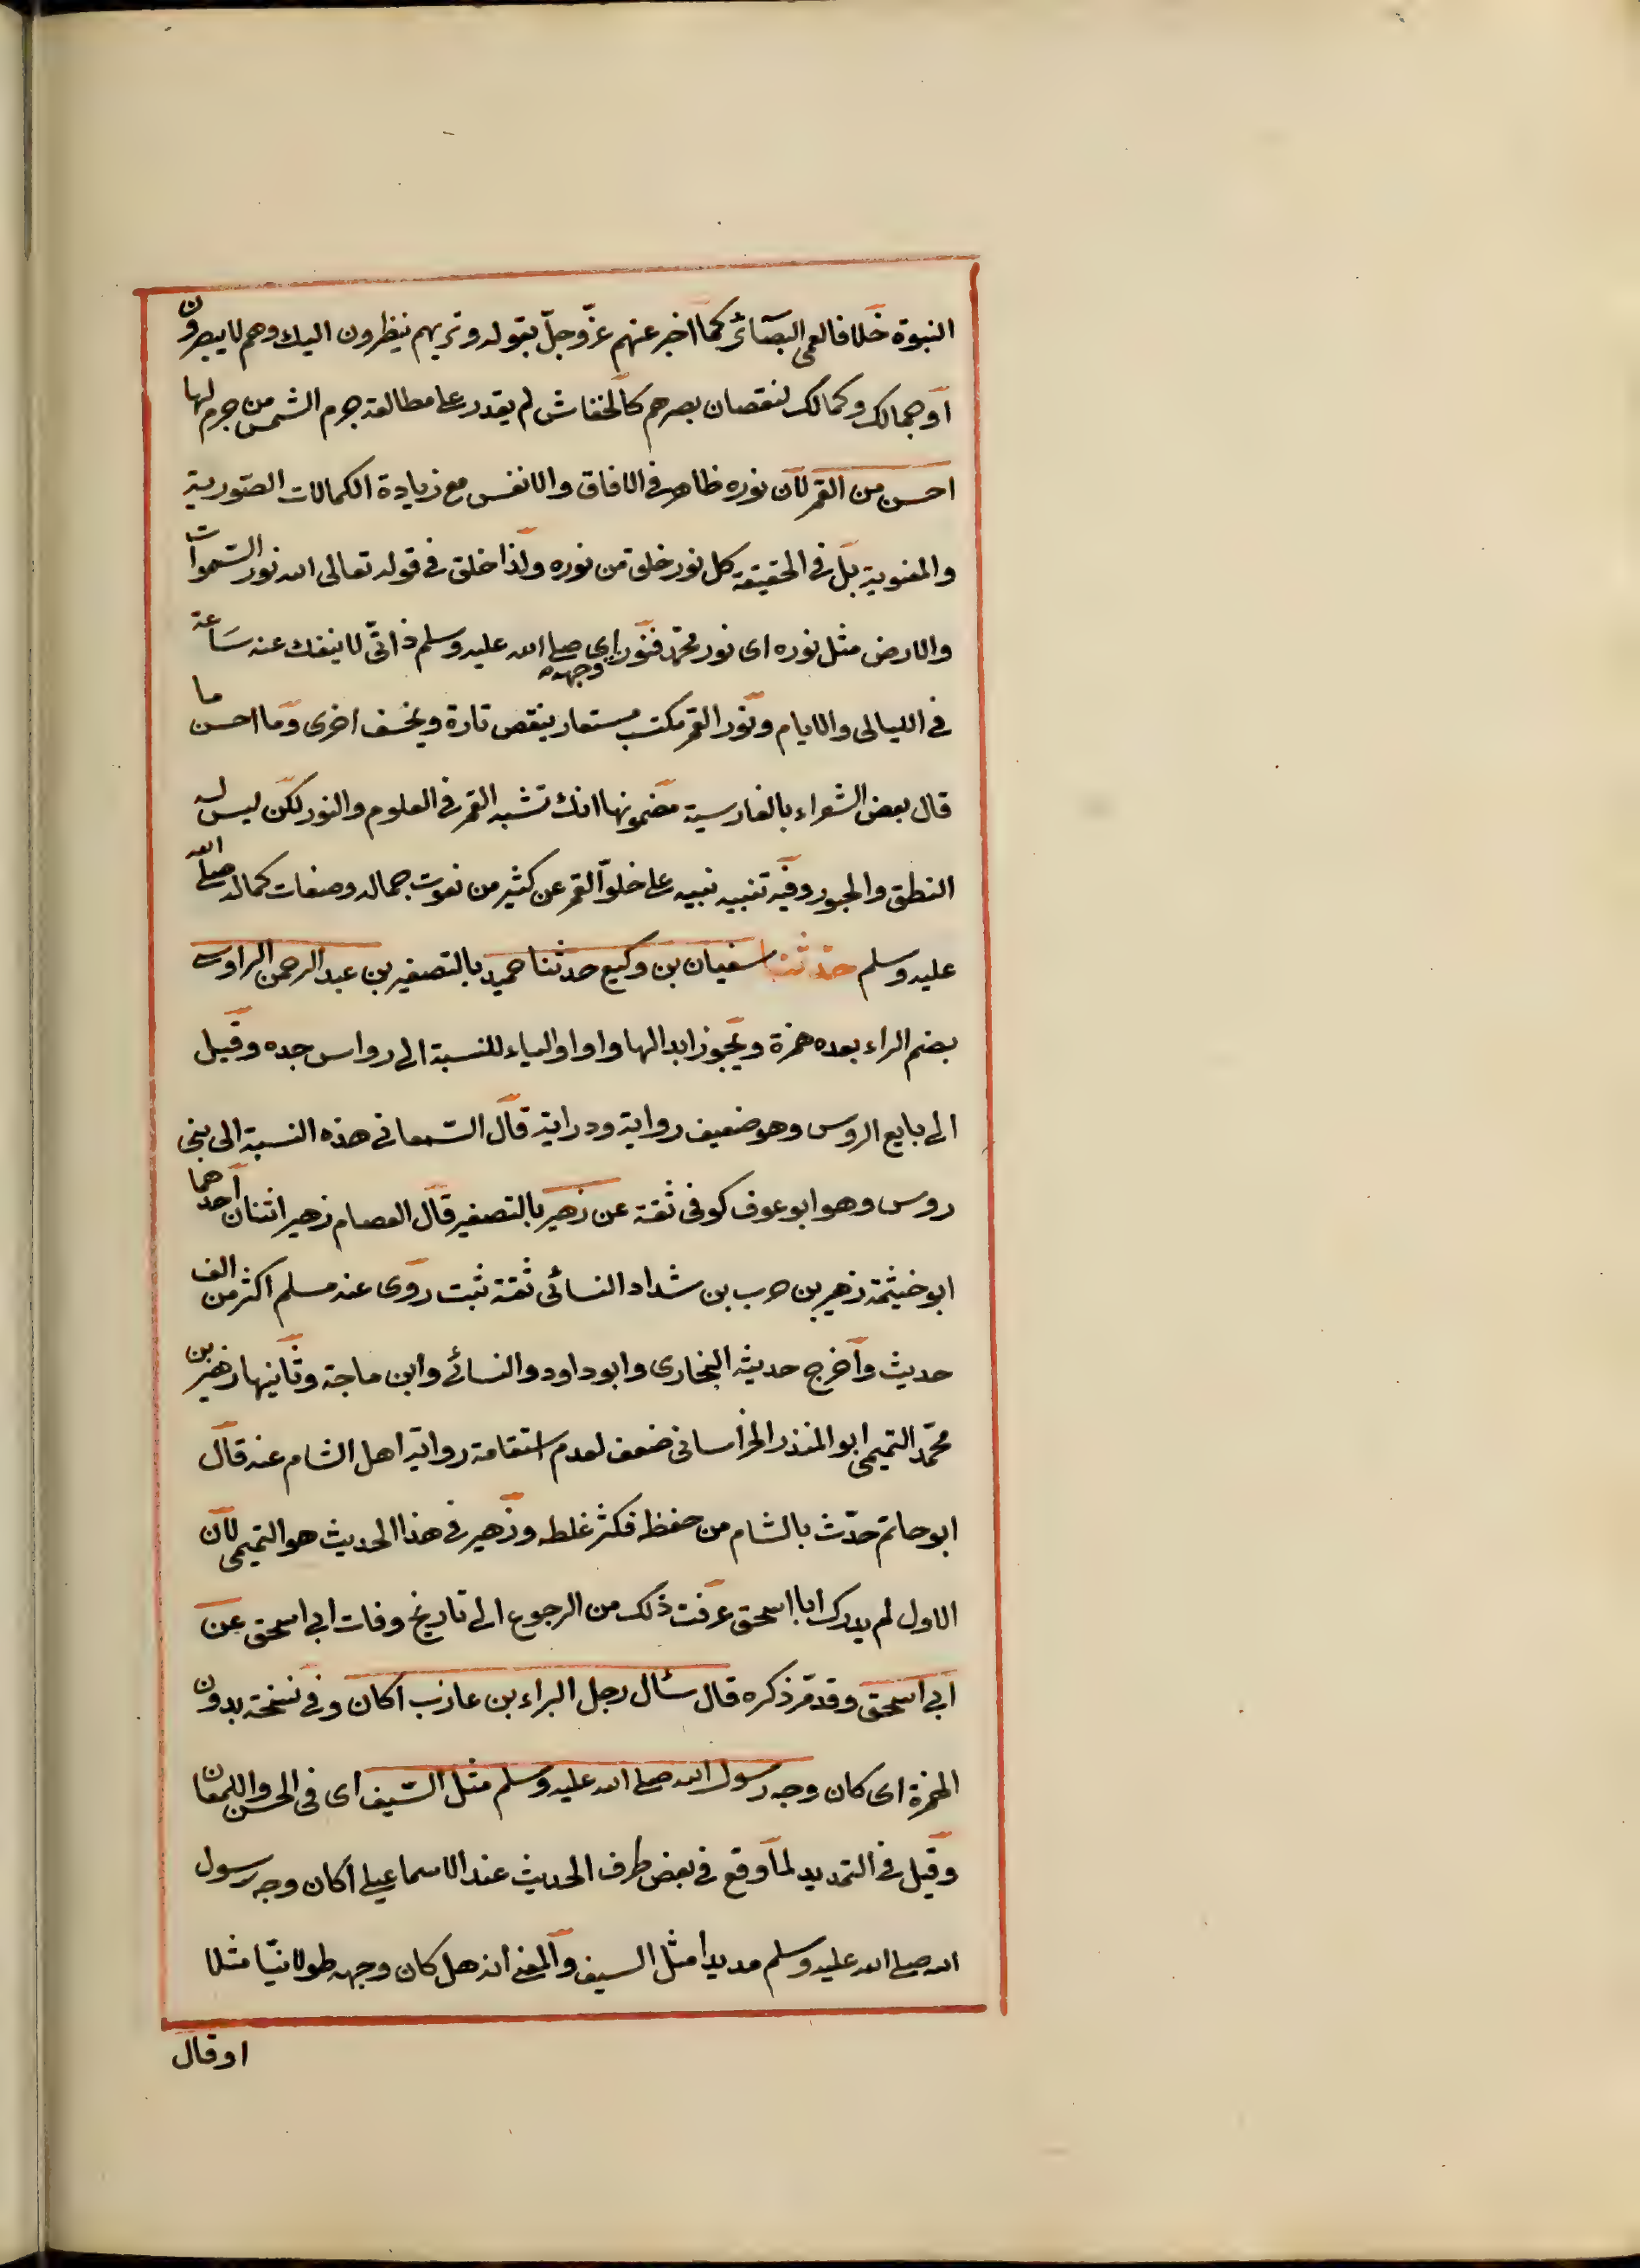 النبوة خلافا لعمى البصائر كما اخبر عنهم عزّ وجلّ بقوله وتريهم ينظرون اليك وهم لا يبصرون
او جمالك وكمالك لنقصان بصرهم كالخفاش لم يقدر على مطالعة جرم الشمس من جرم لها
احسن من القمر لان نوره ظاهر فى الافاق والانفس مع زيادة الكمالات الصّورية
والمعنوية بل فى الحقيقة كل نور خلق من نوره ولذا خلق فى قوله تعالى الله نور السّموات
والارض مثل نوره اى نور محمّد فنور اى وجهه صلى الله عليه وسلم ذاتّى لا ينفك عنه سَاعة
فى الليالى والايام ونور القمر مكتسب مستعار ينقص تارة ويخسف اخرى وما احسن ما
قال بعض الشعراء بالفارسية مضمونها انك تشبه القمر فى العلوم والنور لكن ليس له
النطق والحبور وفيه تنبيه نبيه على خلوّ القمر عن كثير من نعوت جماله وصفات كماله صلى الله
عليه وسلم حدّثنا سفيان بن وكيع حدثنا حميد بالتصغير بن عبد الرحمن الراوسى
بضم الراء بعده همزة ويجوز ابدالها واوا والياء للنسبة الى رواس جده وقيل
الى بايع الروس وهو ضعيف رواية ودراية قال السّمعانى هذه النسبة الى بنى
روس وهو ابو عوف كوفى ثقة عن زهير بالتصغير قال العصام زهير اثنان احدهما
ابو خيثمة زهير بن حرب بن شداد النسائى ثقة ثبت روى عنه مسلم اكثر من الف
حديث واخرج حديثه البخارى وابو داود والنسائى وابن ماجة وثانيها زهير بن
محمّد التميمى ابو المنذر الخراسانى ضعف لعدم استقامة رواية اهل الشام عنه قال
ابو حاتم حدّث بالشام من حفظه فكثر غلطه وزهير فى هذا الحديث هو التميمى لان
الاول لم يدرك ابا اسحق عرفت ذلك من الرجوع الى تاريخ وفات ابى اسحق عن
ابى اسحق وقد مرّ ذكره قال سئال رجل البراء بن عازب اكان وفى نسخة بدون
الهمزة اى كان وجه رسول الله صلى الله عليه وسلم مثل السّيف اى فى الحسن واللمعان
وقيل فى التمديد لما وقع فى بعض طرف الحديث عند الاسماعيلى اكان وجه رسول
الله صلى الله عليه وسلم مديدا مثل السيف والمعنى انه هل كان وجهه طولانيّا مثلا
او قال